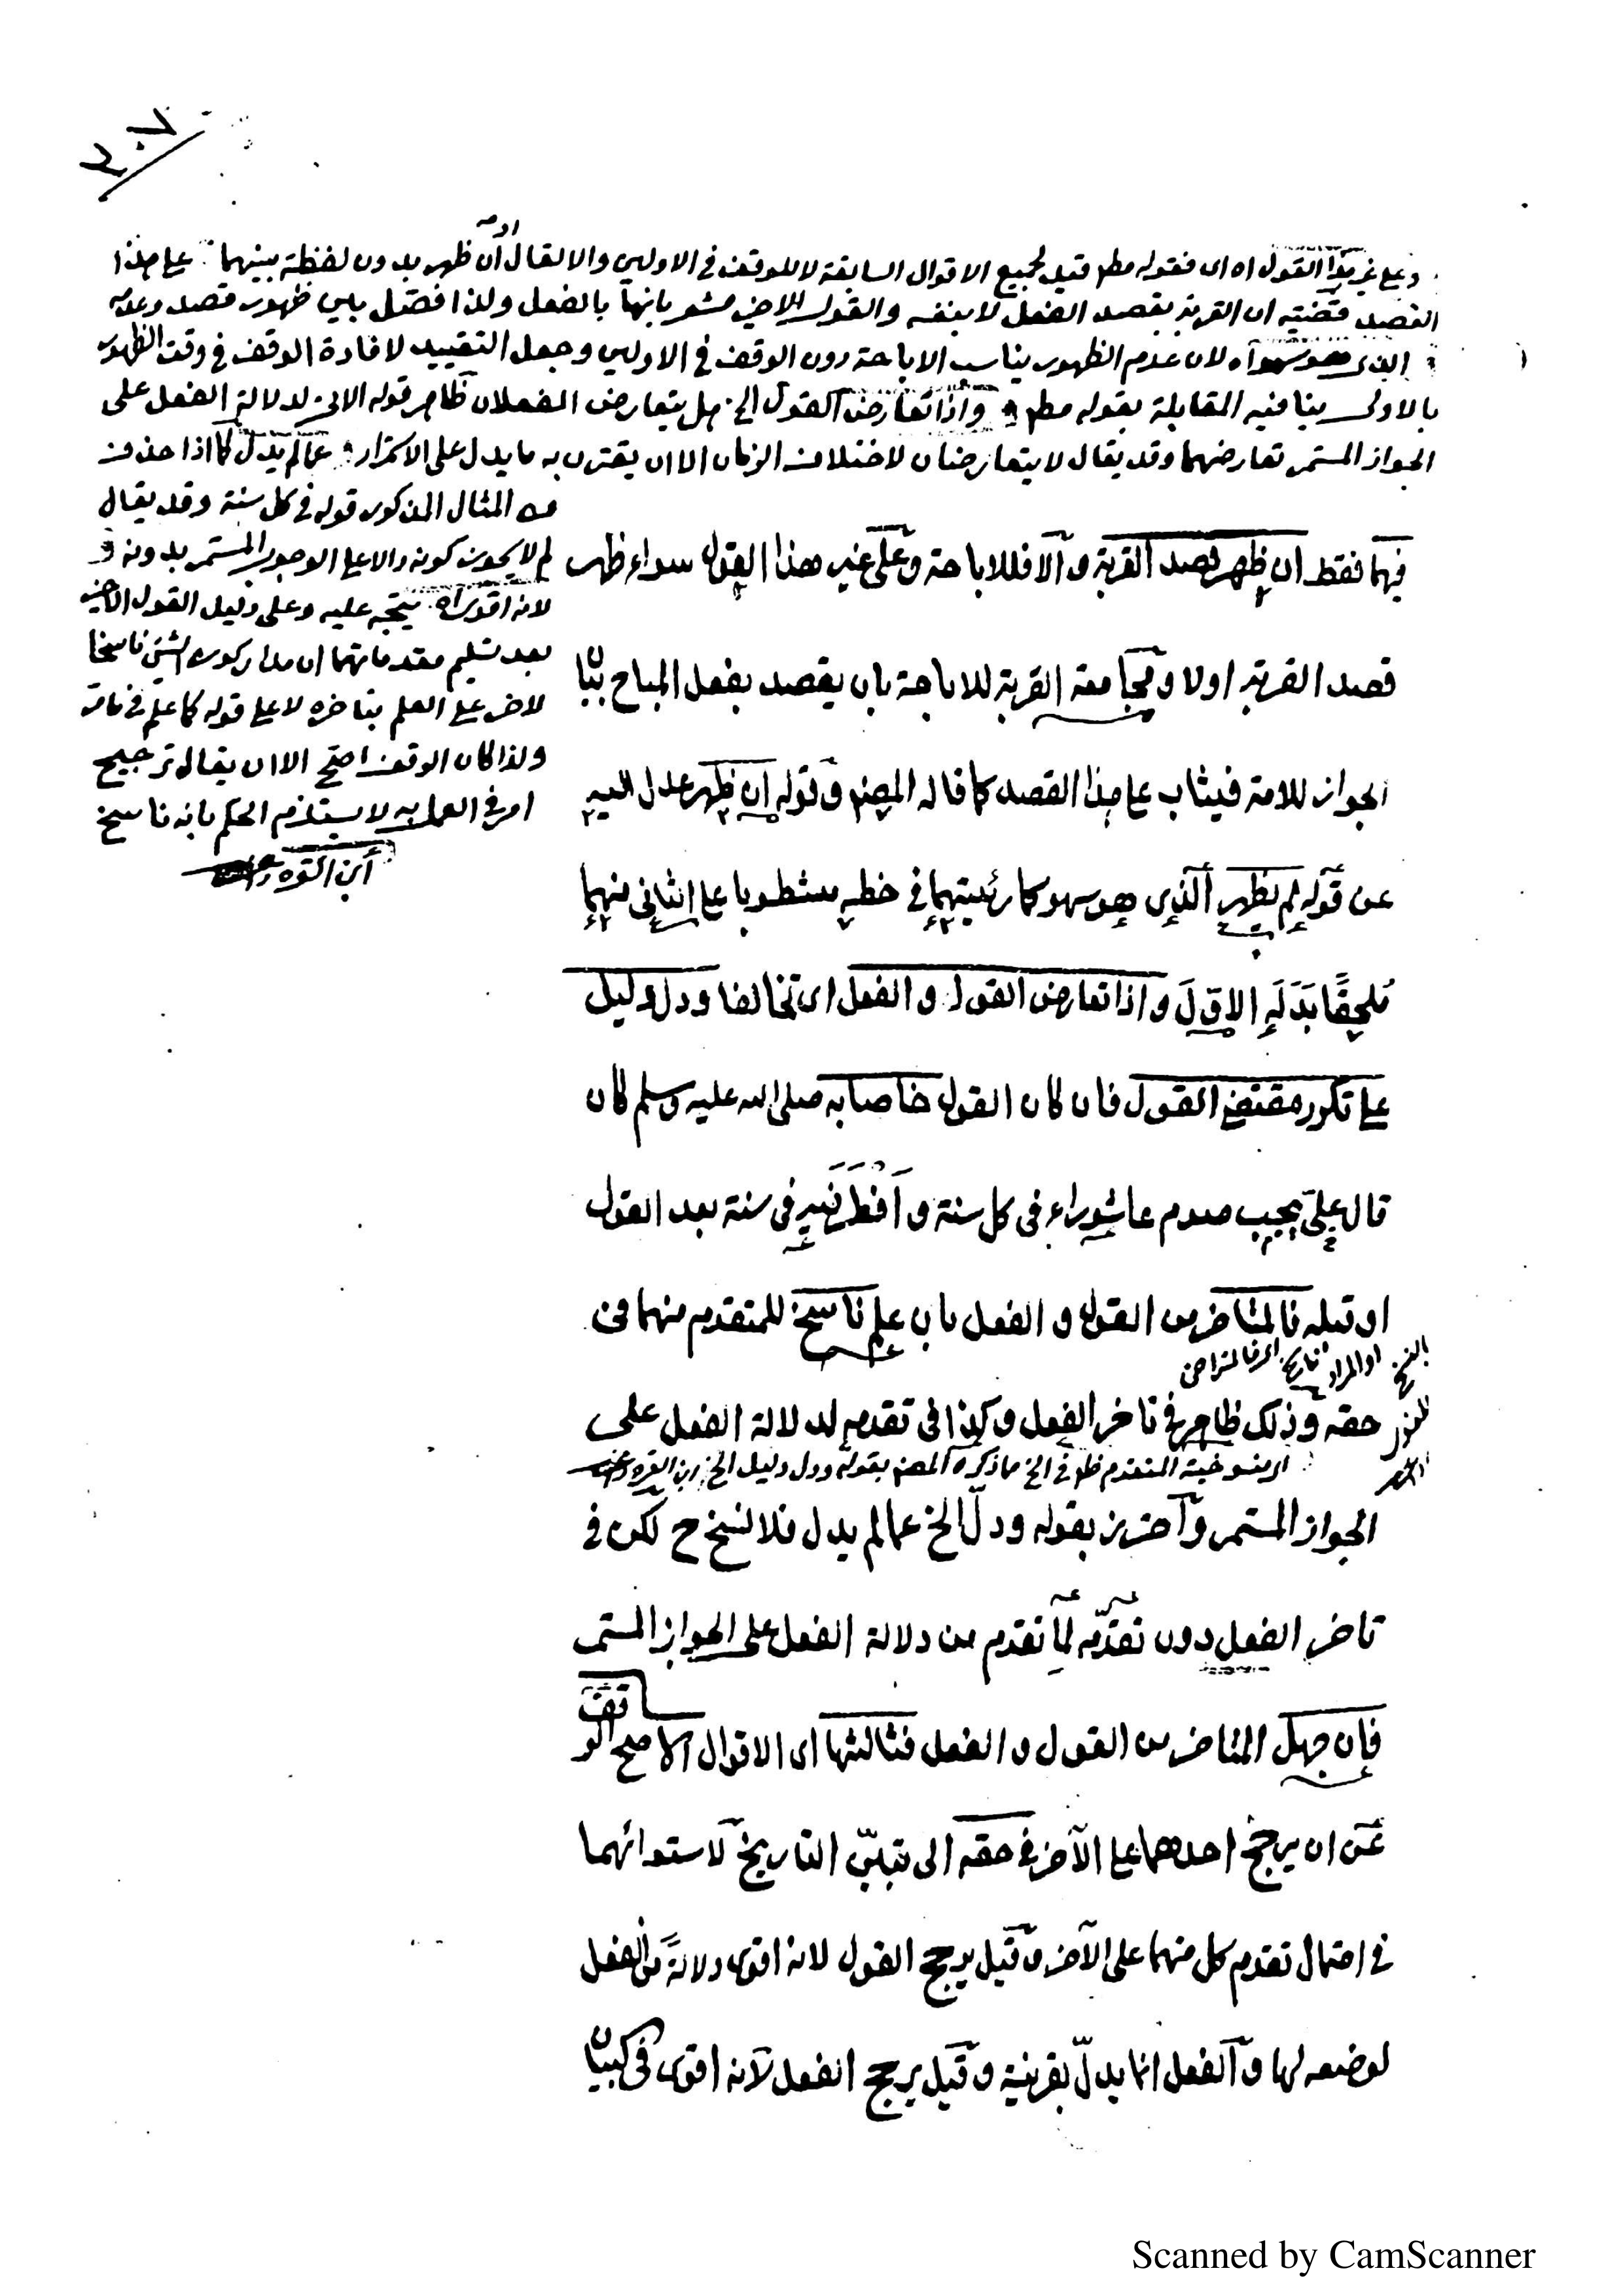 ٣٠٧
وعلى غير هذا القول اه اى فقوله مطلقا قيد لجميع الاقوال السابقة لا للوقف فى الاولين والا لقال ان ظهر بدون لفظة بينهما على هذا
القصد قضيته ان القربة بقصد الفعل لا بنفسه والقول الاخير مشعر بانها بالفعل ولذا فصّل بين ظهور قصد وعدمه
الذى هو سهو اه لان عدم الظهور يناسب الاباحة دون الوقف فى الاولين وجعل التقييد لافادة الوقف فى وقت الظهور
بالاولى ينافيه المقابلة بقوله مطلقا واذا تعارض القول الخ هل يتعارض الفعلان ظاهر قوله الاتى لدلالة الفعل على
الجواز المستمر تعارضهما وقد يقال لا يتعارضان لاختلاف الزمان الا ان يقترن به ما يدل على الاستمرار عما لم يدل كما اذا حذف
من المثال المذكور قوله فى كل سنة وقد يقال
لم لا يجوز كونه دالا على الوجوب المستمر بدونه
لانه اقوى اه يتجه عليه وعلى دليل القول الاخير
بعد تسليم مقدماتهما ان مدار كون الشئ ناسخا
لاخر على العلم بتاخره لا على قوله كما علم فى
ولذا كان الوقف اصح الا ان يقال ترجيح
امر فى العمل به لا يستلزم الحكم بانه ناسخ
ابن القره داغى
فيهما فقط ان ظهر قصد القربة والا فللاباحة وعلى غير هذا القول سواء ظهر
قصد القربة اولا ومجامعة القربة للاباحة بان يقصد بفعل المباح بيان
الجواز للامة فيثاب على هذا القصد كما قاله المصنف وقوله ان ظهر عدل اليه
عن قوله ان لم يظهر الذى هو سهو كما رئيتهما فى خطه مشطوبا على الثانى منهما
ملحقًا بَدَلَه الاوّلَ واذا تعارض القول والفعل اى تخالفا ودل دليل
على تكرر مقتضى القول فان كان القول خاصا به صلى الله عليه وسلم كان
قال علىّ يجب صوم عاشوراء فى كل سنة وافطر فيه فى سنة بعد القول
او قبله فالمتاخر من القول والفعل بان علم ناسخ للمتقدم منهما فى
حقه وذلك ظاهر فى تاخر الفعل وكذا فى تقدمه لدلالة الفعل على
اى منسوخية المتقدم الخ ما ذكره المصنف بقوله ودل دليل الخ ابن القره داغى
الجواز المستمر واحترز بقوله ودلّ الخ عما لم يدل فلا نسخ ح لكن فى
تاخر الفعل دون تقدّمه لما تقدم من دلالة الفعل على الجواز المستمر
فإن جهل المتاخر من القول والفعل فثالثها اى الاقوال الاصح الوقف
عن ان يرجح احدهما على الآخر فى حقه الى تبيّن التاريخ لاستوائهما
فى احتمال تقدم كل منهما على الآخر وقيل يرجح القول لانه اقوى دلالةً من الفعل
لوضعه لها والفعل انما يدلّ بقرينة وقيل يرجح الفعل لانه اقوى فى البيان
Scanned by CamScanner